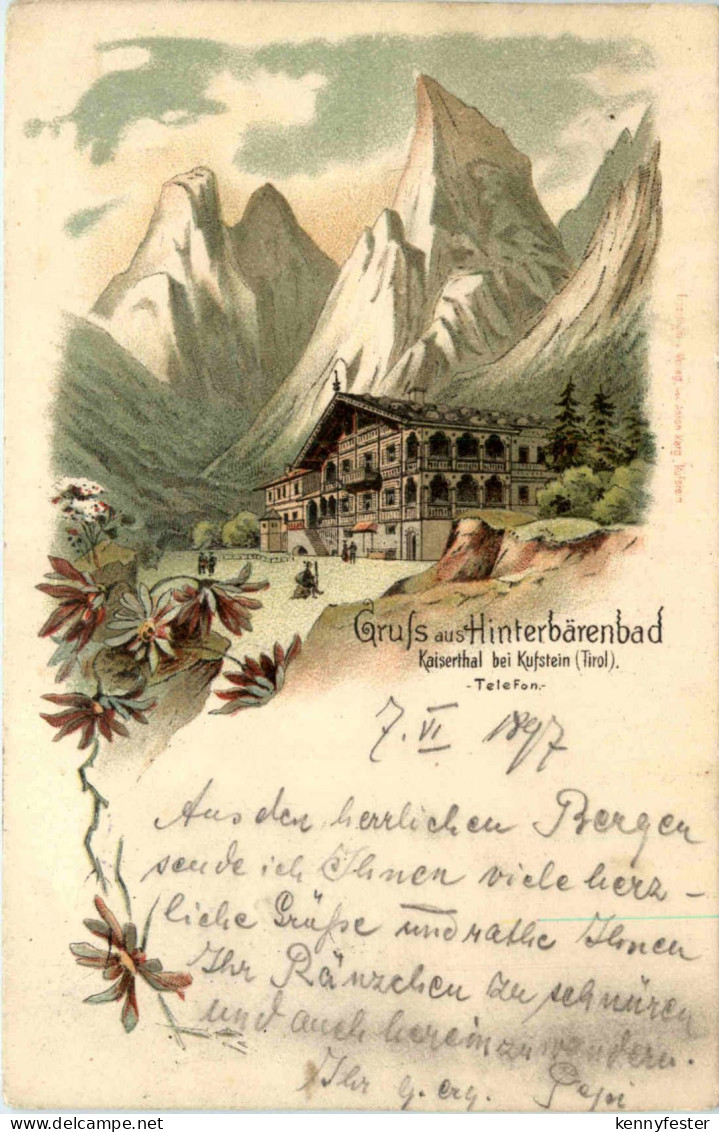 Gruſs aus Hinterbärenbad
Kaiserthal bei Kufstein (Tirol).
- Telefon.-
Verlag von Anton Karg, Kufstein
7. VI 1897
Aus den herrlichen Bergen
sende ich Ihnen viele herz-
liche Grüße und rathe Ihnen
Ihr Ränzchen zu schnüren
und auch hereinzuwandern.
Ihr g. erg. Pepi
kennyfester